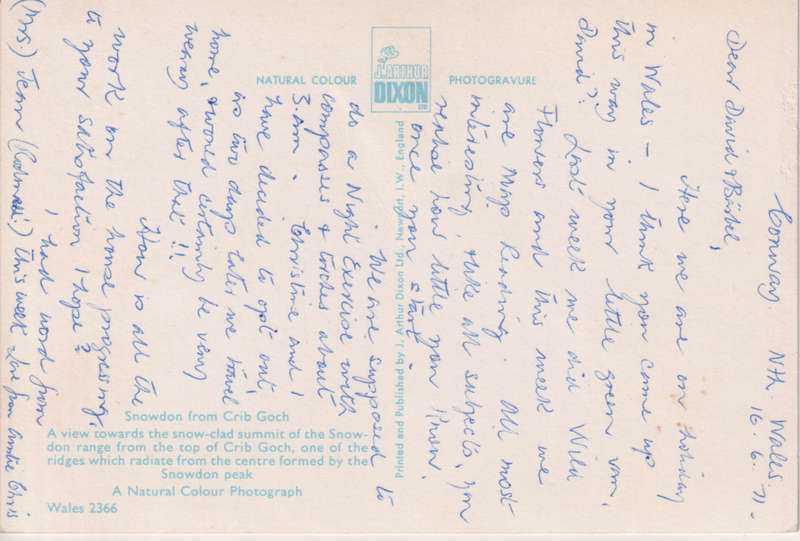 Conway. Nth. Wales.
16.6.71.
Dear David & Bärbel,
Here we are on holiday
in Wales – I think you came up
this way in your little green van,
David? Last week we did Wild
Flowers and this week we
are Map Reading. All most
interesting, & like all subjects, you
realise how little you know,
once you start.
We are supposed to
do a Night Exercise with
compasses & torches about
3.am. Christine and I
have decided to opt out,
as two days later we travel
home, & would certainly be very
weary after that!!
How is all the
work on the house progressing,
to your satisfaction I hope?
I had word from
(Mrs.) Jean this week - Love from Auntie Chris
NATURAL COLOUR
J. ARTHUR
DIXON
LTD
PHOTOGRAVURE
Printed and Published by J. Arthur Dixon Ltd., Newport, I.W., England
Snowdon from Crib Goch
A view towards the snow-clad summit of the Snow-
don range from the top of Crib Goch, one of the
ridges which radiate from the centre formed by the
Snowdon peak
A Natural Colour Photograph
Wales 2366